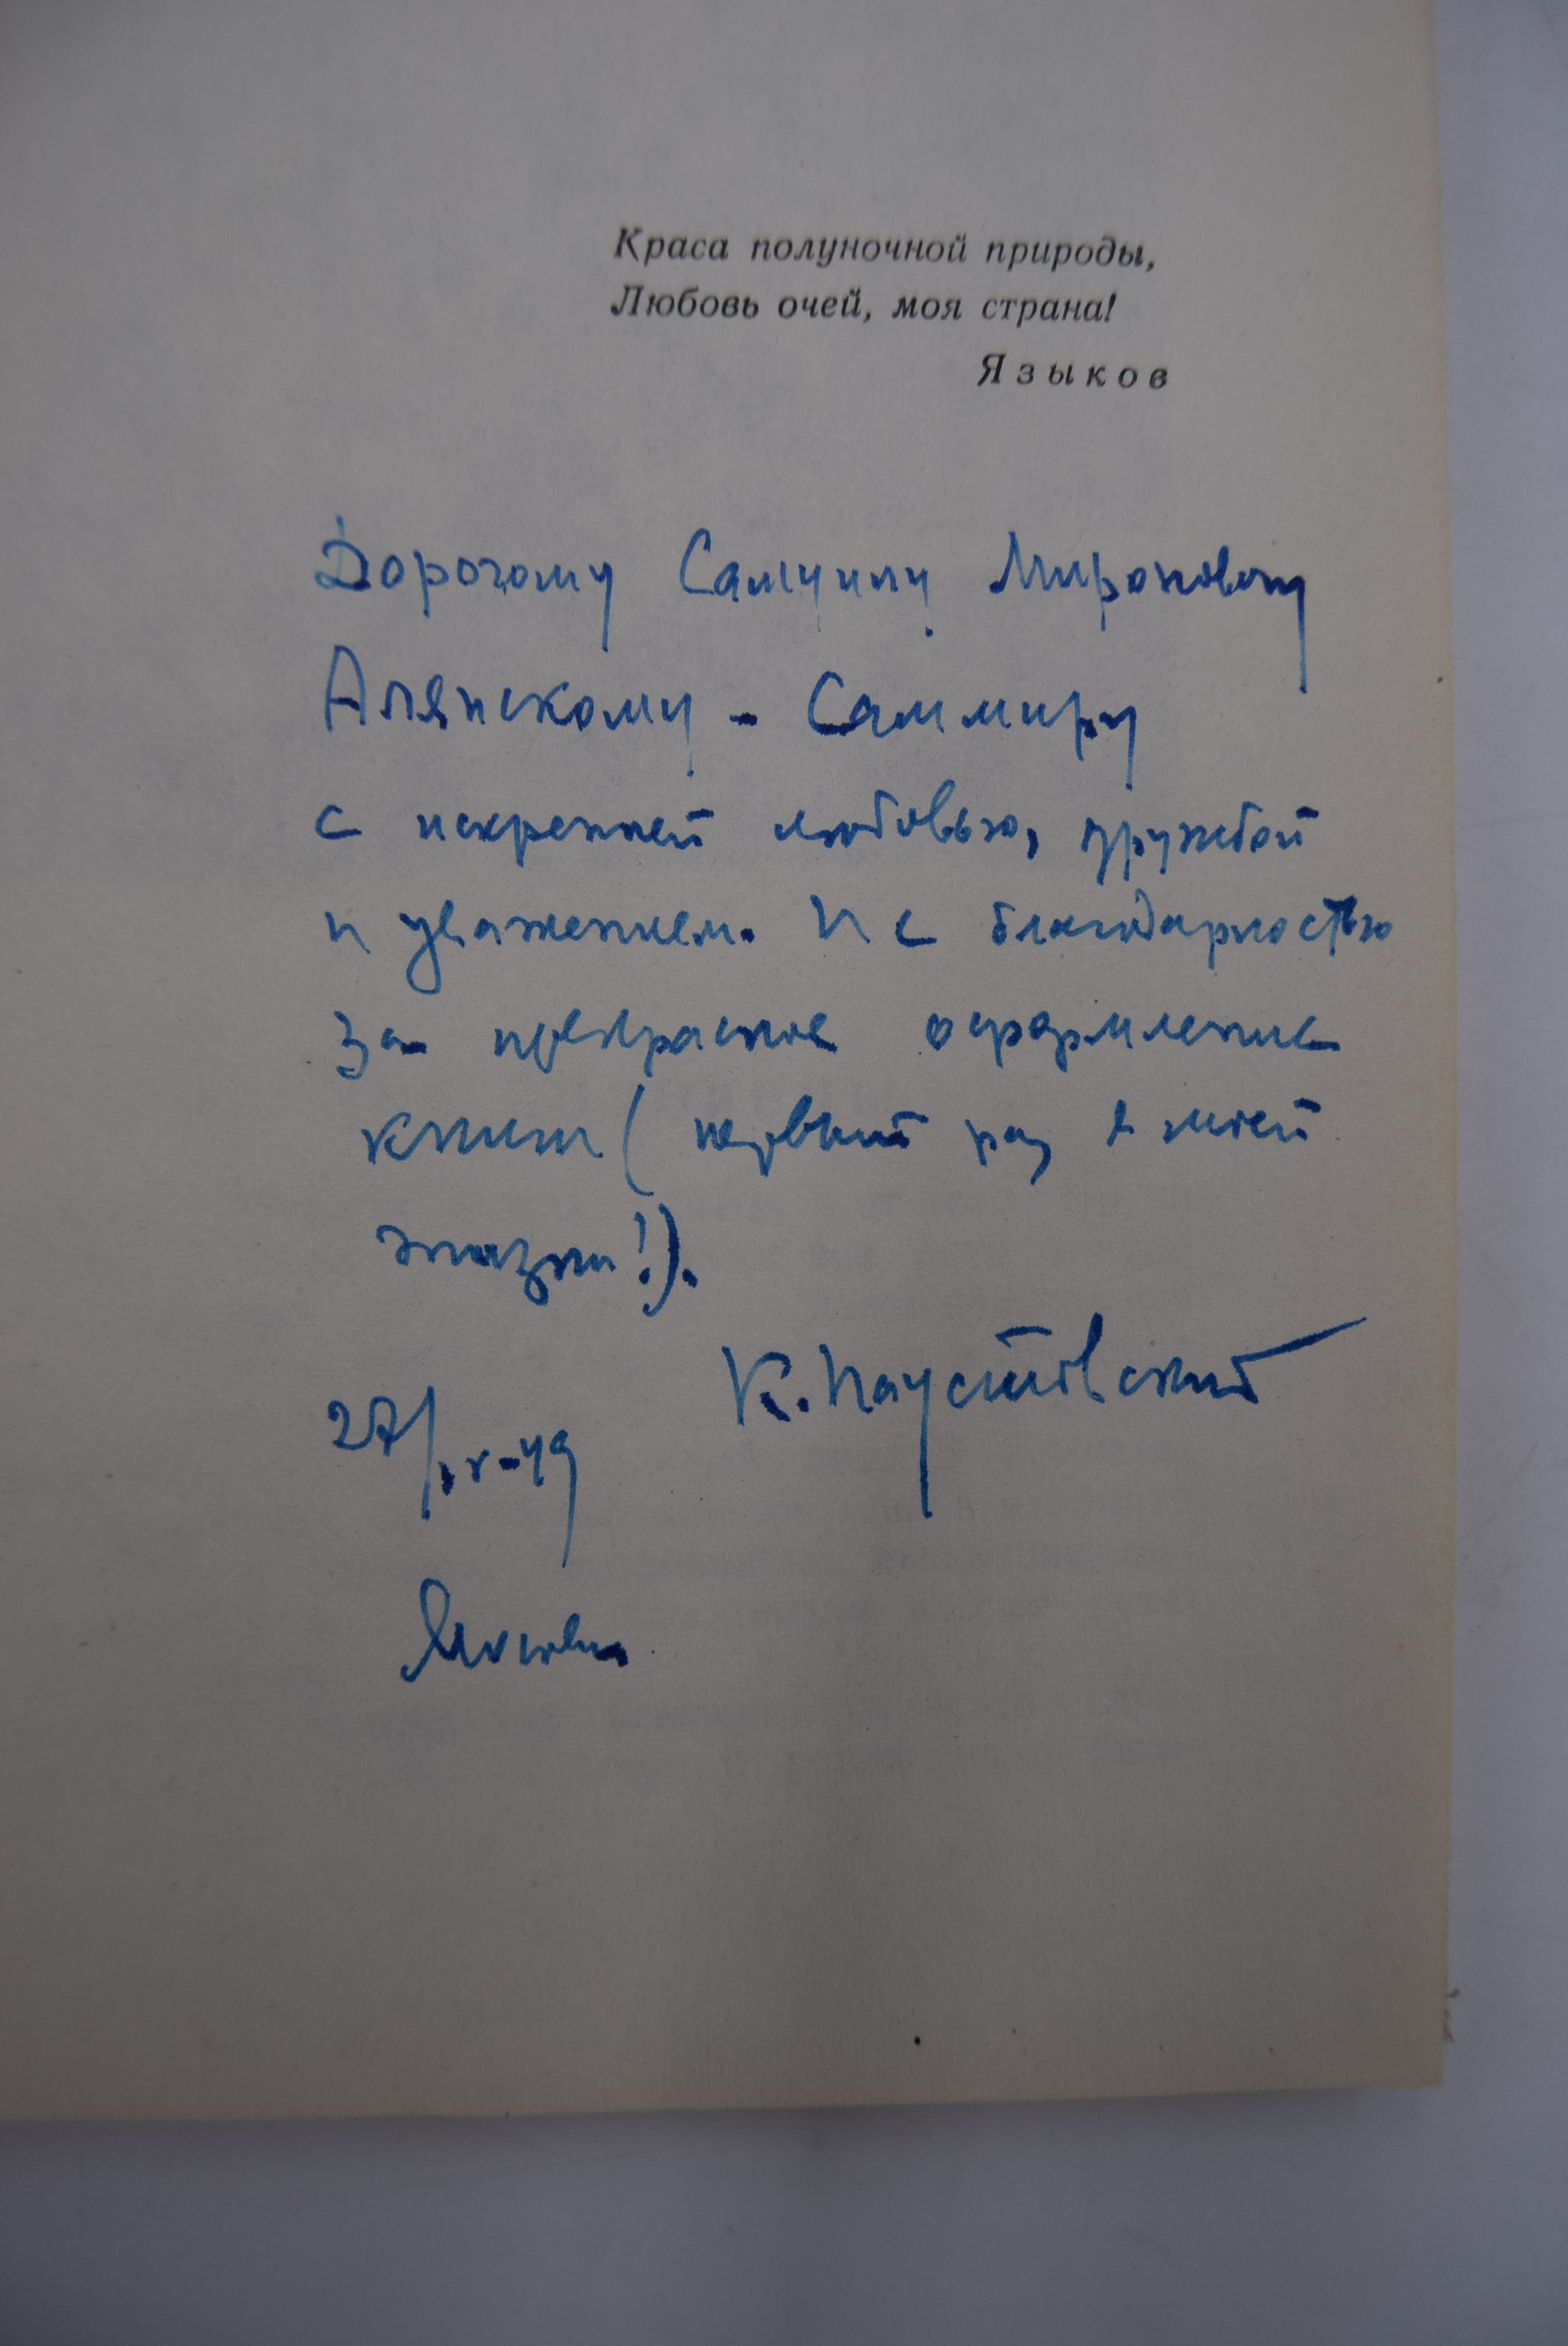 Краса полуночной природы,
Любовь очей, моя страна!
Языков
Дорогому Самуилу Мироновичу
Алянскому - Саммиру
с искренней любовью, дружбой
и уважением. И с благодарностью
за прекрасное оформление
книги (первый раз в моей
жизни!).
К. Паустовский
27/IV-49
Москва